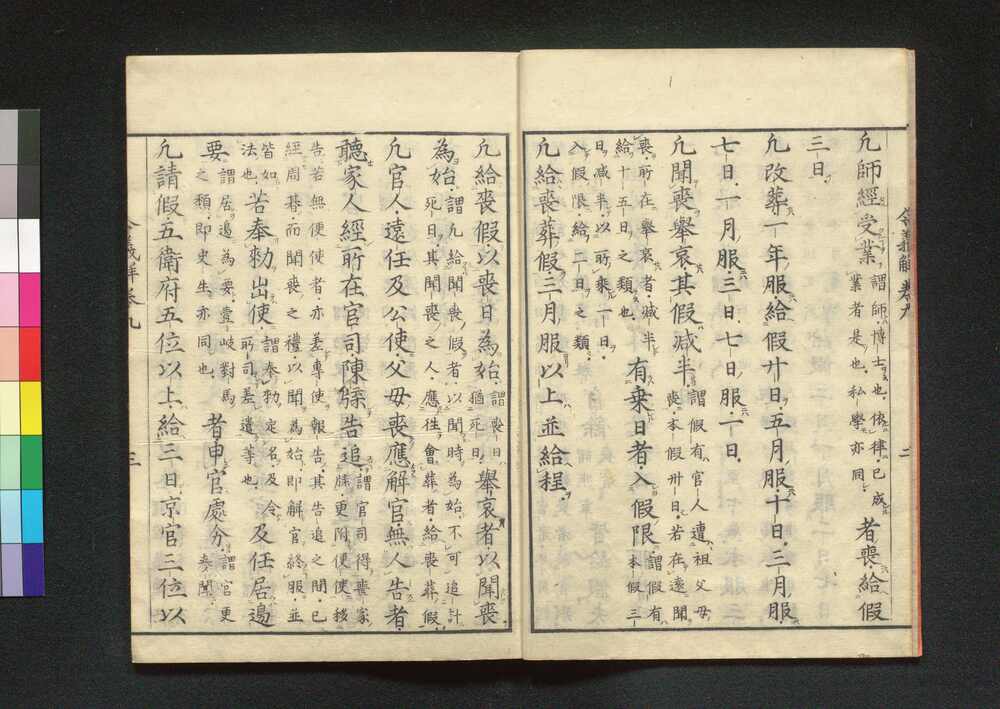 凢師經受業謂師博士也依律已成業者是也私學亦同者喪給假
三日
凢改葬一年服給假廿日五月服十日三月服
七日一月服三日七日服一日
凢聞喪擧哀其假减半謂假有官人遭祖父母喪本假卅日若在遠聞
喪所在擧哀者减半給十五日之類也有乗日者入假限謂假有本假三
日减半以所乗一日入假限給二日之類
凢給喪葬假三月服以上並給程
令義解卷九
二
凢給喪假以喪日為始謂喪日猶死日擧哀者以聞喪
為始謂凢給聞喪假者以聞時為始不可追計死日其聞喪之人應徃會葬者給喪葬假
凢官人遠任及公使父毋喪應解官無人告者
聽家人經所在官司陳牒告追謂官司得喪家牒更附便使移
告若無便使者亦差專使報告其告追之間已經周朞而聞喪之禮以聞為始即解官終服並
皆如法也若奉勑出使謂奉勑定名及令所司差遣等也及任居邉
要謂居邉為要壹岐對馬之類即史生亦同也者申官處分謂官更奏聞
凢請假五衛府五位以上給三日京官三位以
令義解卷九
三